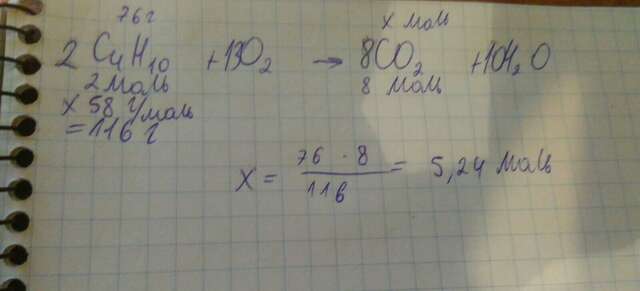 76 г x моль
2 C4H10 + 13O2 → 8CO2 + 10H2O
2 моль 8 моль
x 58 г/моль
= 116 г
x = 76 · 8 / 116 = 5,24 моль